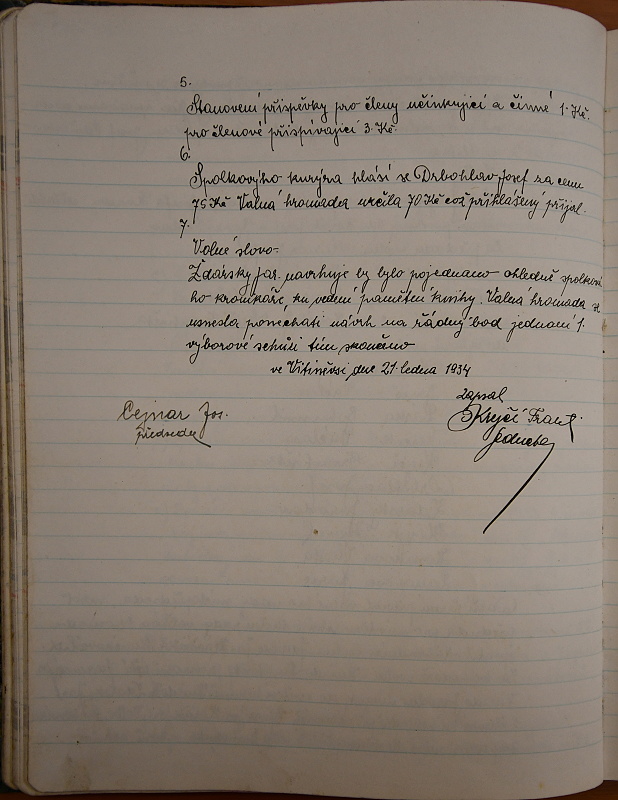 5.
Stanovení příspěvky pro členy učinkující a činné 1 Kč.
pro členové přispívající 3 Kč.
6.
Spolkovýho kurýra hlásí se Drbohlav Josef za cenu
75 Kč Valná hromada určila 70 Kč což přihlášený přijal.
7.
Volné slovo.
Žďárský Jar. navrhuje by bylo pojednano ohledně spolkové
ho kronikáře, ku vedení pamětní knihy. Valná hromada se
usnesla ponechati návrh na řádný bod jednaní 1.
výborové schůzi tím skončeno
ve Vitiněvsi, dne 21. ledna 1934
zapsal
Krejčí Frant.
jednatel
Cejnar Jos.
předseda